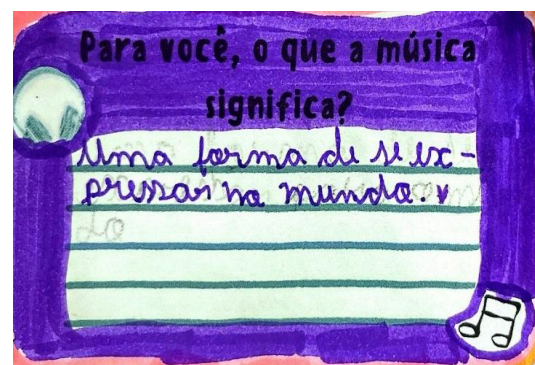 Para você, o que a música
significa?
Uma forma de se ex-
pressar no mundo.